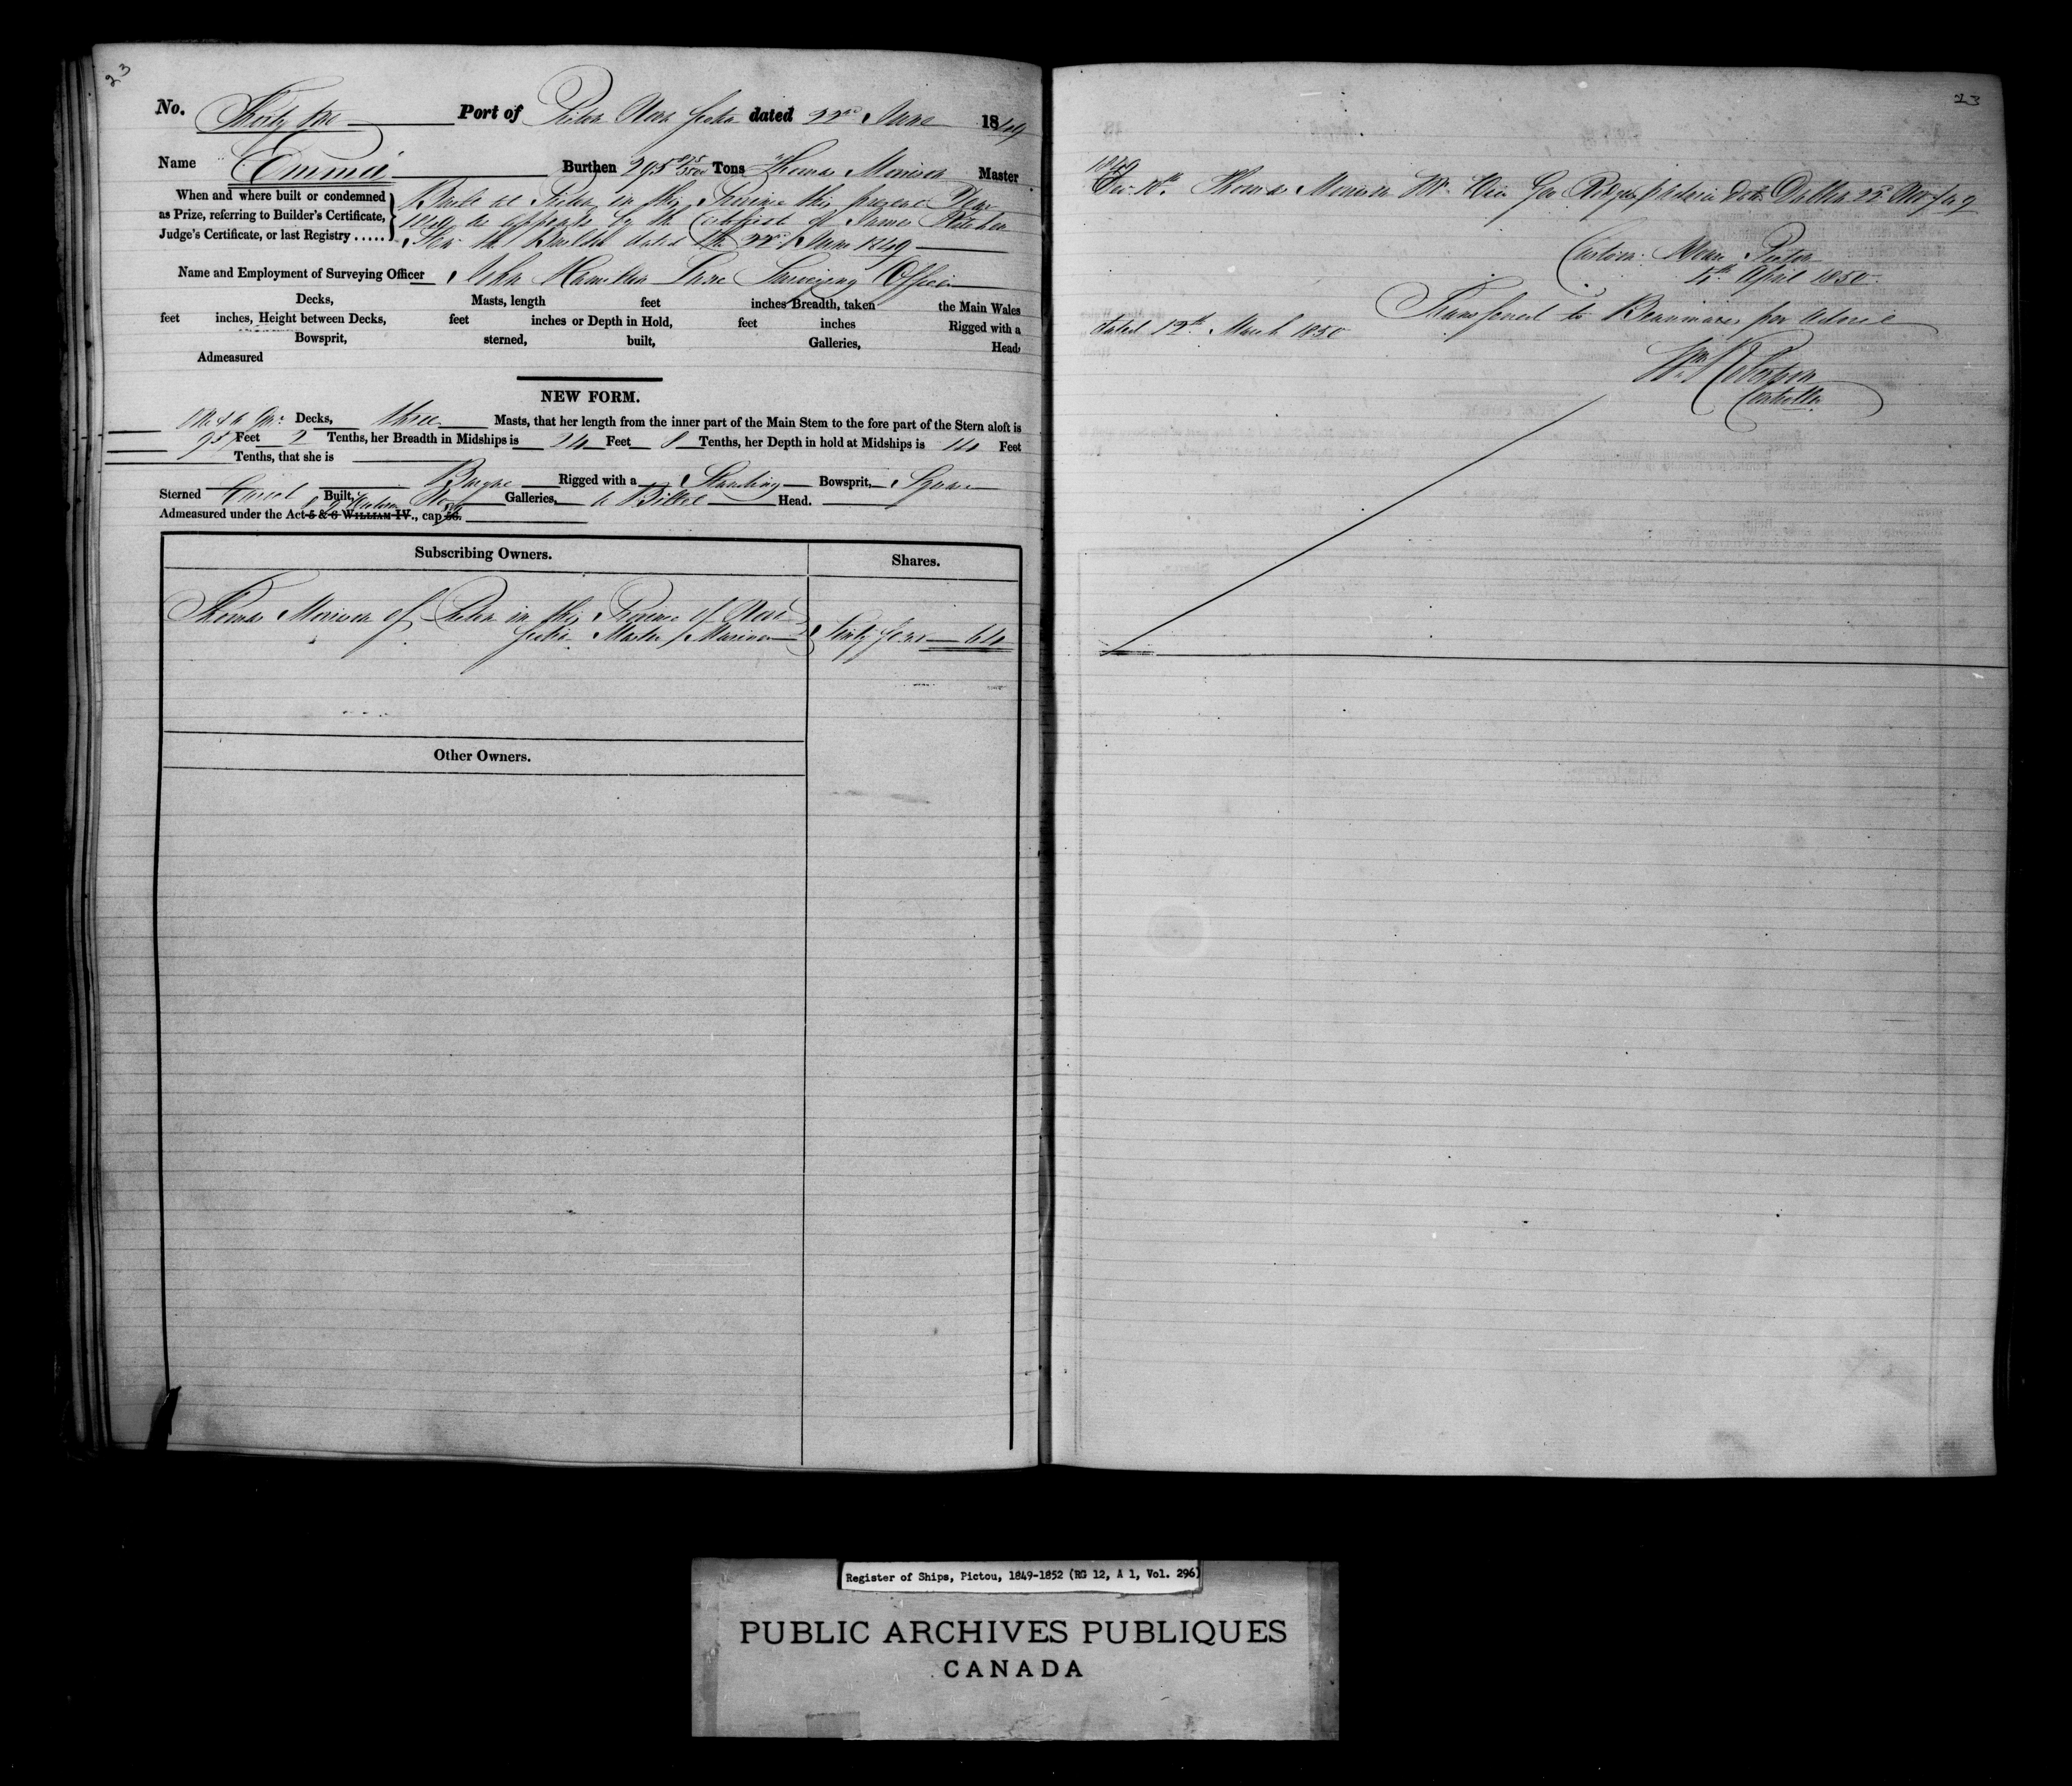 23
No. Thirty One Port of Pictou Nova Scotia dated 22nd June 1849
Name Emma Burthen 295 Tons Thomas Morison Master
When and where built or condemned
as Prize, referring to Builder's Certificate,
Judge's Certificate, or last Registry .....
Built at Pictou in this Province this present Year
as appears by the Certificate of James
the Builder dated the 22nd June 1849
Name and Employment of Surveying Officer John Hamilton Lane Surveying Officer
Decks, Masts, length feet inches Breadth, taken the Main Wales
feet inches, Height between Decks, feet inches or Depth in Hold, feet inches Rigged with a
Bowsprit, sterned, built, Galleries, Head,
Admeasured
NEW FORM.
One & a Qr: Decks, three Masts, that her length from the inner part of the Main Stem to the fore part of the Stern aloft is
Feet 2 Tenths, her Breadth in Midships is 24 Feet 8 Tenths, her Depth in hold at Midships is 14 Feet
Tenths, that she is
Barque Rigged with a Standing Bowsprit, Square
Sterned Carvel Built, No Galleries, a Billet Head.
Admeasured under the Act 5 & 6 WILLIAM IV., cap 56.
Subscribing Owners. Shares.
Thomas Morison of Pictou in this Province of Nova
Scotia Master Mariner Sixty four 64
Other Owners.
23
1849
Dec. Thomas Morison Geo dated 22d Nov /49
Custom House Pictou
April 1850
Transferred to Beaumaris per advice
dated 12th March 1850
Wm Robertson
Controller
Register of Ships, Pictou, 1849-1852 (RG 12, A 1, Vol. 296)
PUBLIC ARCHIVES PUBLIQUES
CANADA